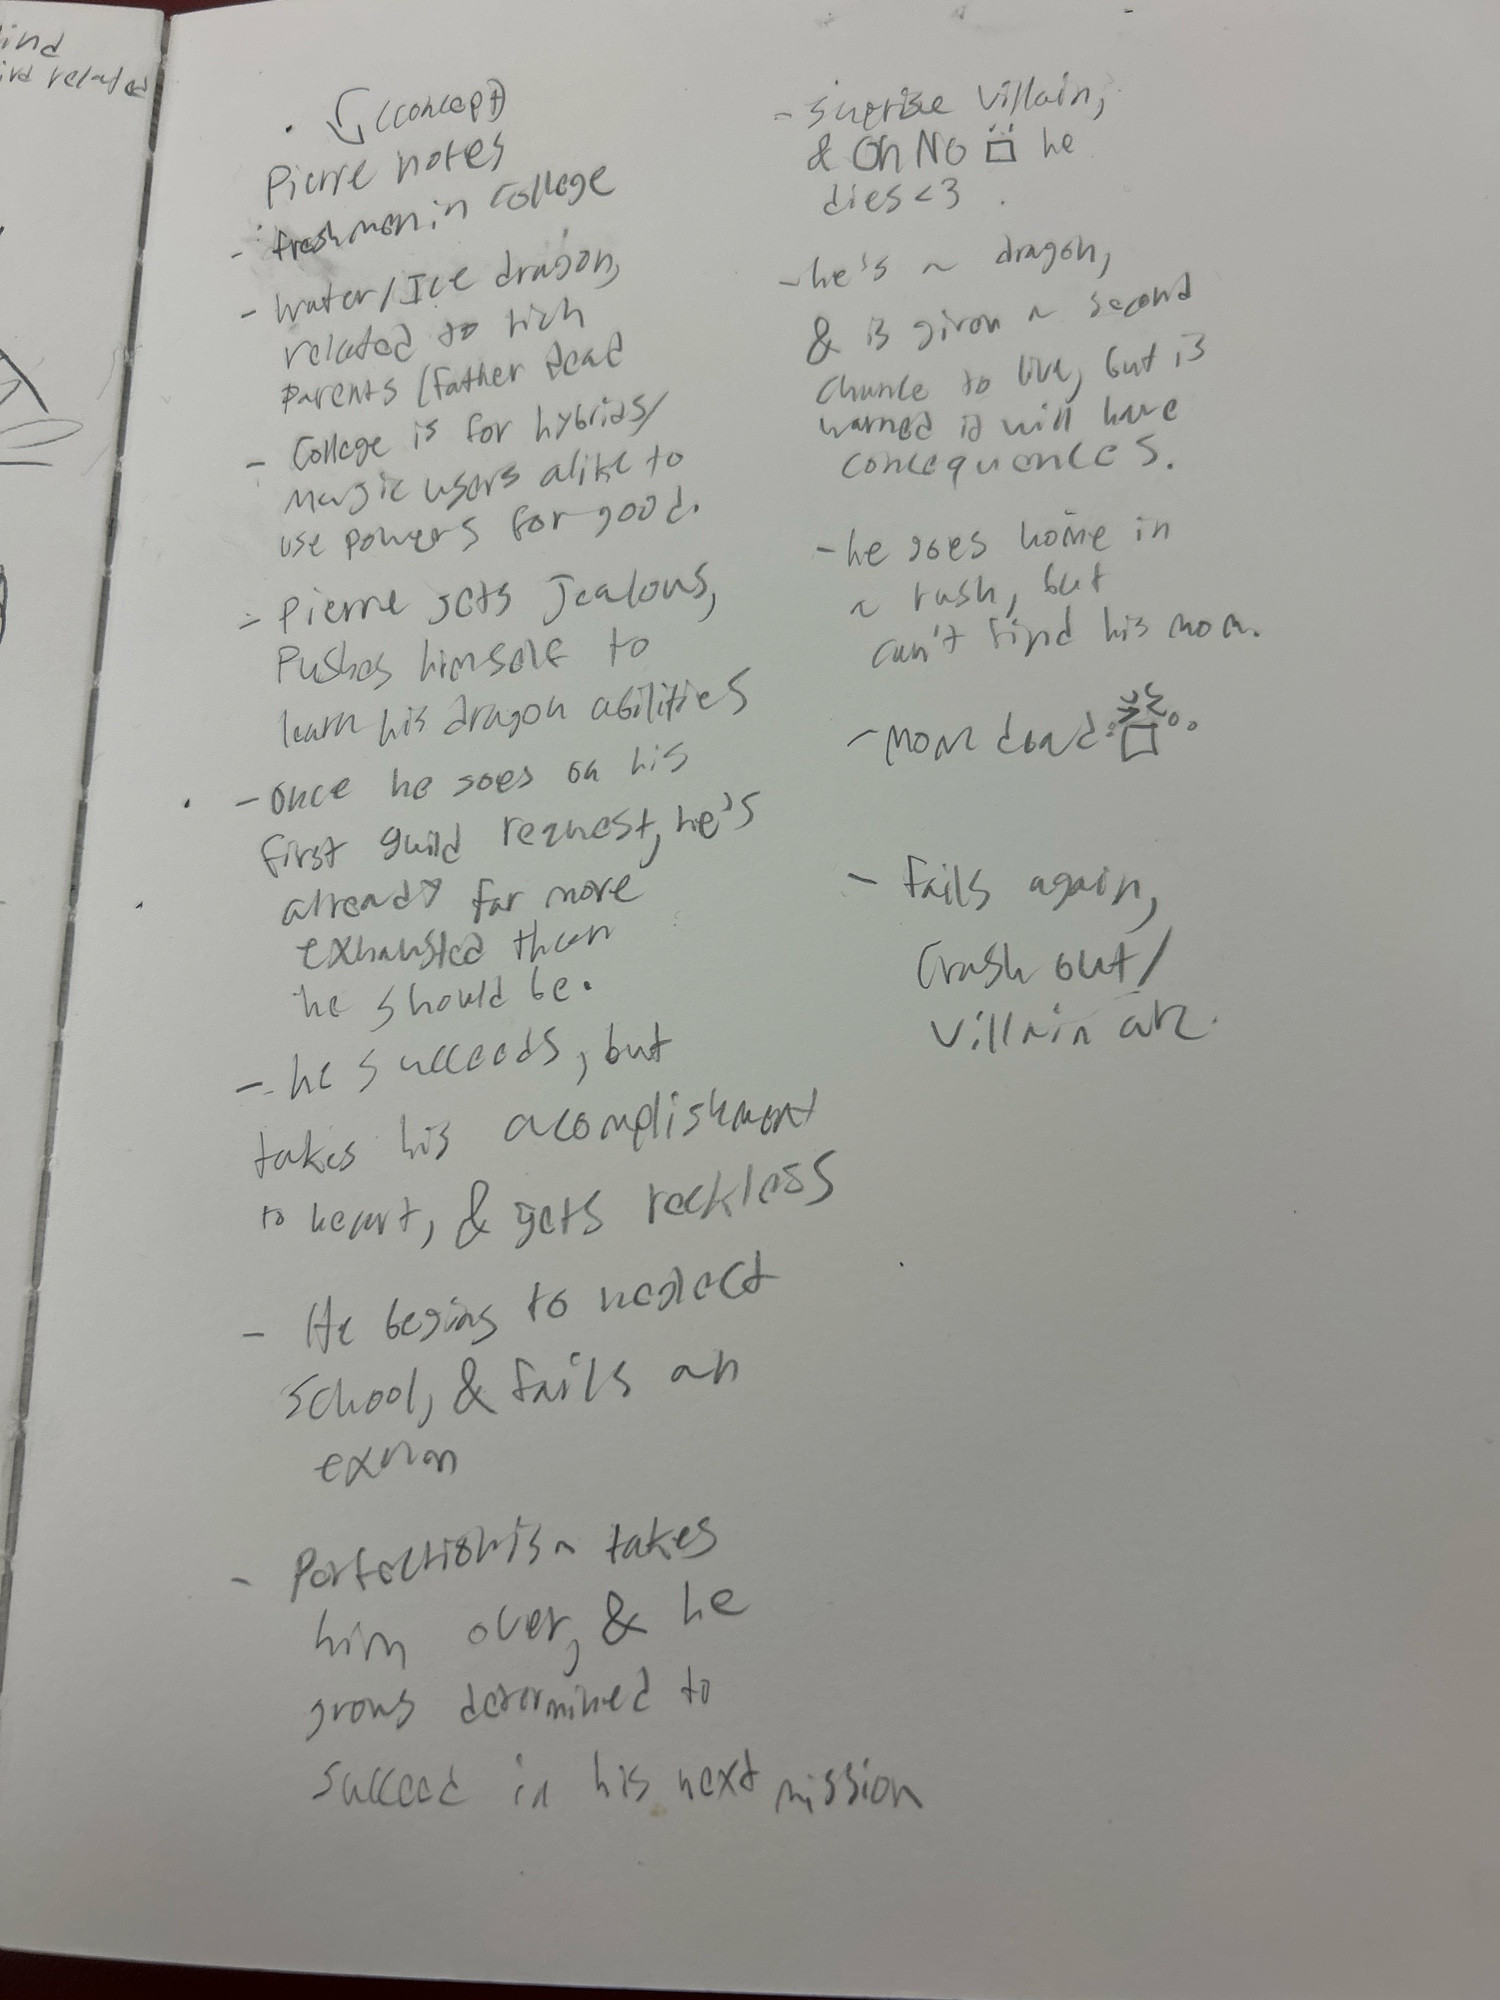 ind
related
(concept)
Pierre notes
- freshman in College
- Water/Ice dragon,
related to rich
parents (father dead
- College is for hybrids/
magic users alike to
use powers for good.
- Pierre gets Jealous,
Pushes himself to
learn his dragon abilities
- Once he goes on his
first guild request, he's
already far more
exhausted than
he should be.
- he succeeds, but
takes his acomplishment
to heart, & gets reckless
- He begins to neglect
School, & fails an
exam
- Perfectionism takes
him over, & he
grows determined to
succeed in his next mission
- suprise villain,
& Oh No he
dies <3.
- he's a dragon,
& is given a second
chance to live, but is
warned it will have
concequences.
- he goes home in
a rush, but
can't find his mom.
- mom dead
- fails again,
Crash out/
Villain arc.